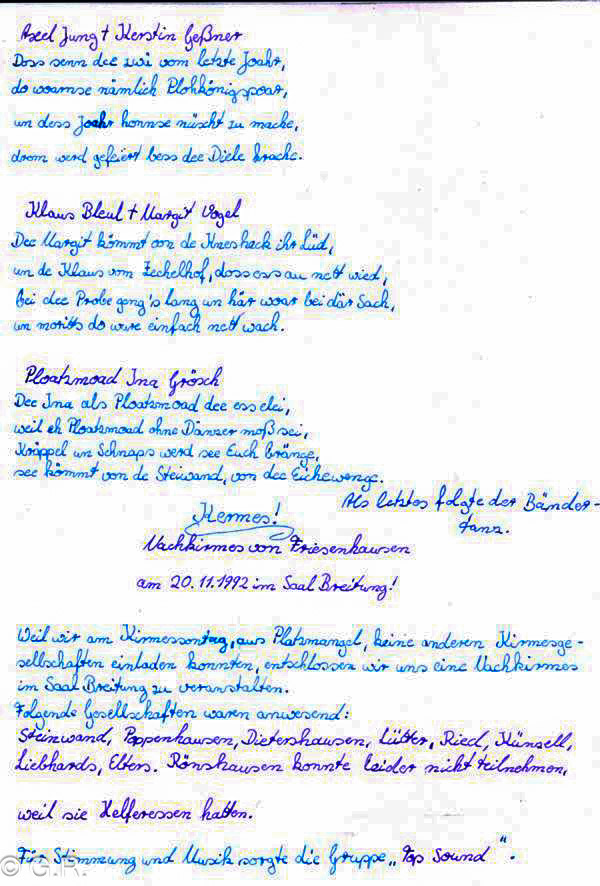 Axel Jung + Kerstin Geßner
Doss senn dee zwi vom letzte Joahr,
do woarnse nämlich Plohkönigspoar,
un dess Joahr honnse nüscht zu mache,
drom werd gefeiert bess dee Diele krache.
Klaus Bleul + Margit Vogel
Dee Margit kömmt von de Knesheck ihr Lüd,
un de Klaus vom Zechelhof, doss ess au nett wied,
bei dee Probe geng's lang un här woar bei där Sach,
un moritts do wure einfach nett wach.
Ploatzmoad Ina Grösch
Dee Ina als Ploatzmoad dee ess elei,
weil eh Ploatzmoad ohne Dänzer moß sei,
Kräppel un Schnaps werd see Euch bränge,
see kömmt von de Steiwand, von dee Eichewenge.
Als letztes folgte der Bänder-
tanz.
Kermes!
Nachkirmes von Friesenhausen
am 20.11.1992 im Saal Breitung!
Weil wir am Kirmessontag, aus Platzmangel, keine anderen Kirmesge-
sellschaften einladen konnten, entschlossen wir uns eine Nachkirmes
im Saal Breitung zu veranstalten.
Folgende Gesellschaften waren anwesend:
Steinwand, Poppenhausen, Dietershausen, Lütter, Ried, Künzell,
Liebhards, Elters. Rönshausen konnte leider nicht teilnehmen,
weil sie Helferessen hatten.
Für Stimmung und Musik sorgte die Gruppe „Top Sound".
© G.R.